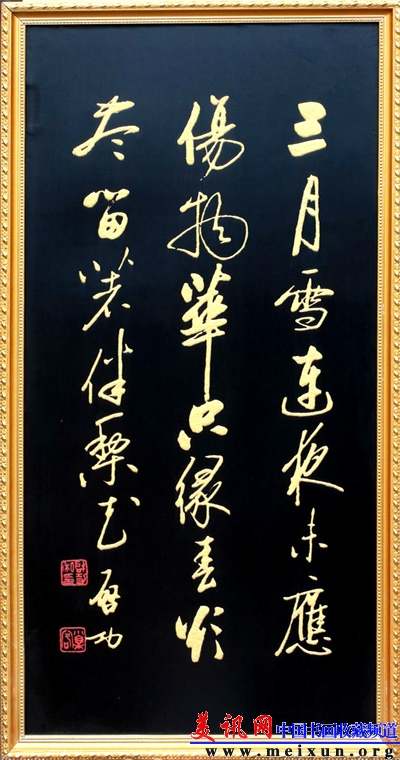 三月雪連夜未應
傷物華只緣春欲
盡留著伴梨花 啓功
美讯网 中国书画收藏频道
www.meixun.org